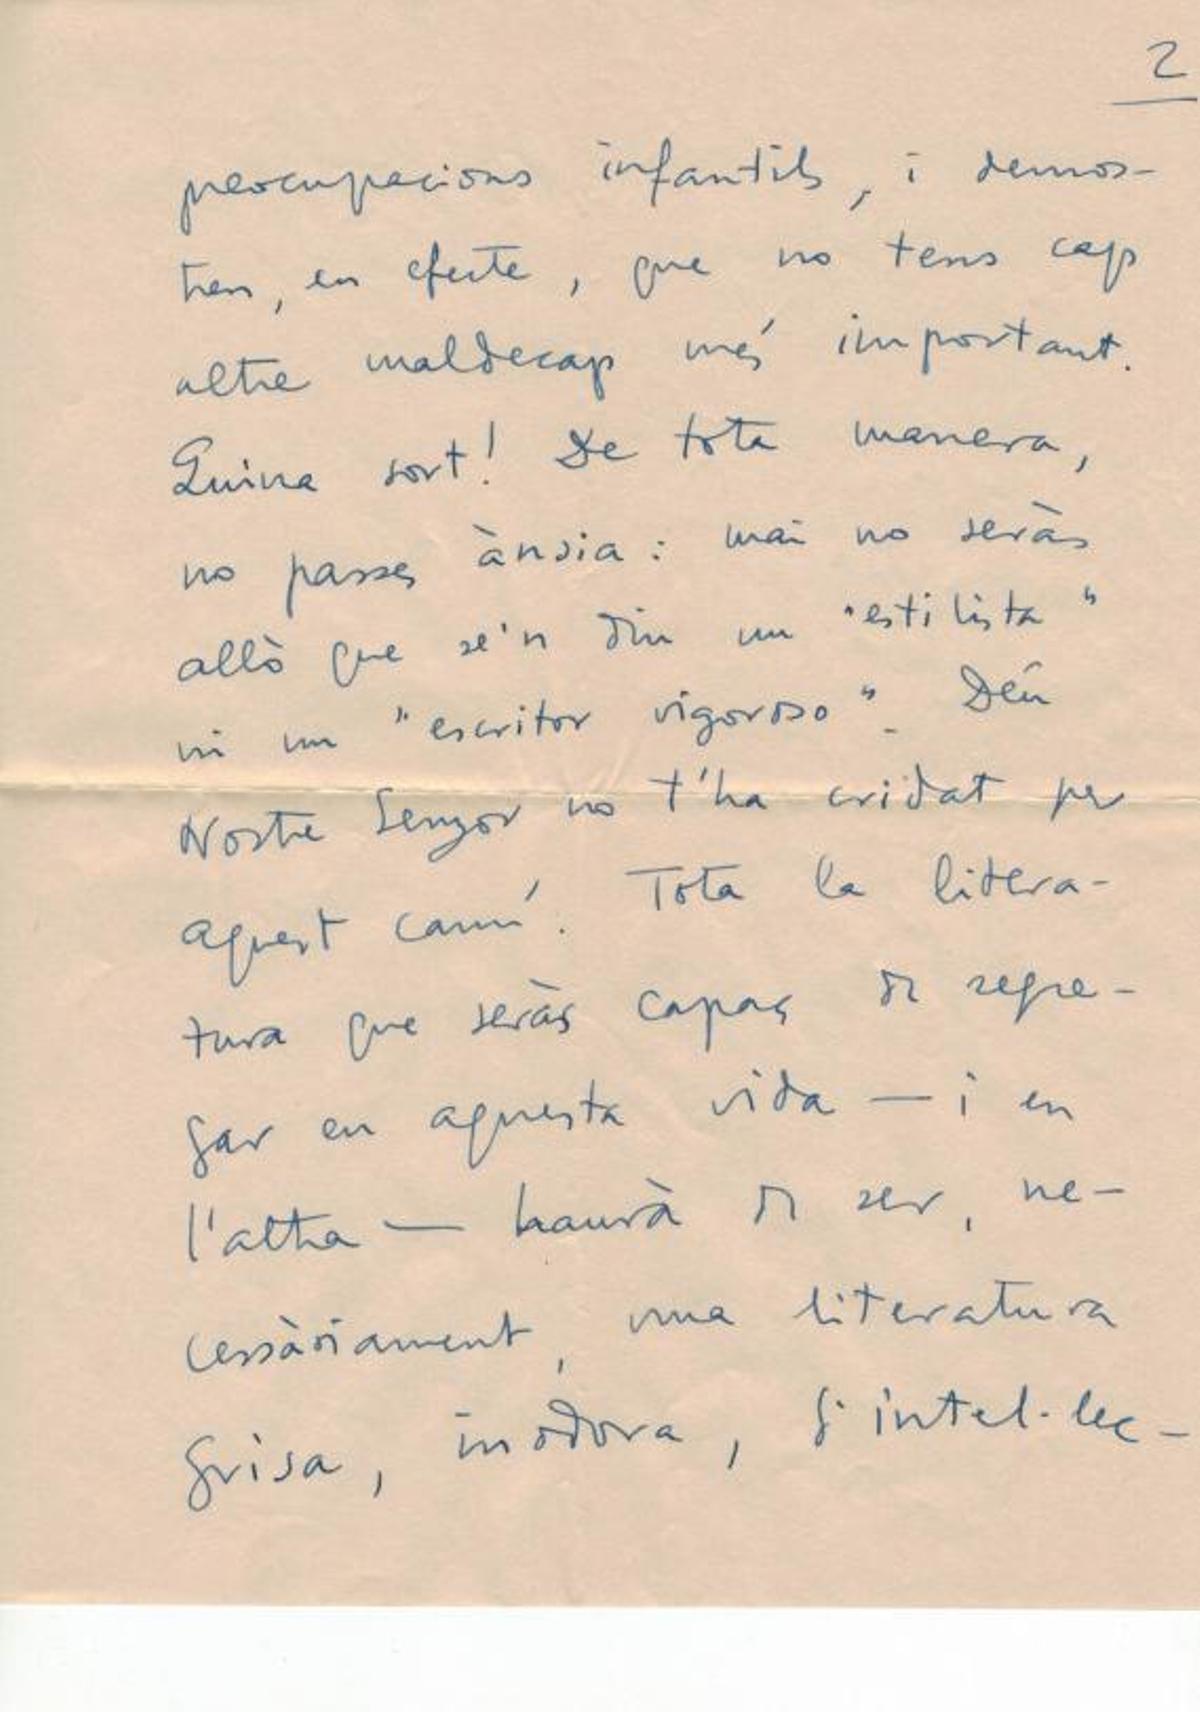 2
preocupacions infantils, i demos-
tren, en efecte, que no tens cap
altre maldecap més important.
Quina sort! De tota manera,
no passes ànsia: mai no seràs
allò que se'n diu un "estilista"
ni un "escritor vigoroso". Déu
Nostre Senyor no t'ha cridat per
aquest camí. Tota la litera-
tura que seràs capaç de segre-
gar en aquesta vida — i en
l'altra — haurà de ser, ne-
cessàriament, una literatura
grisa, inodora, d'intel·lec-